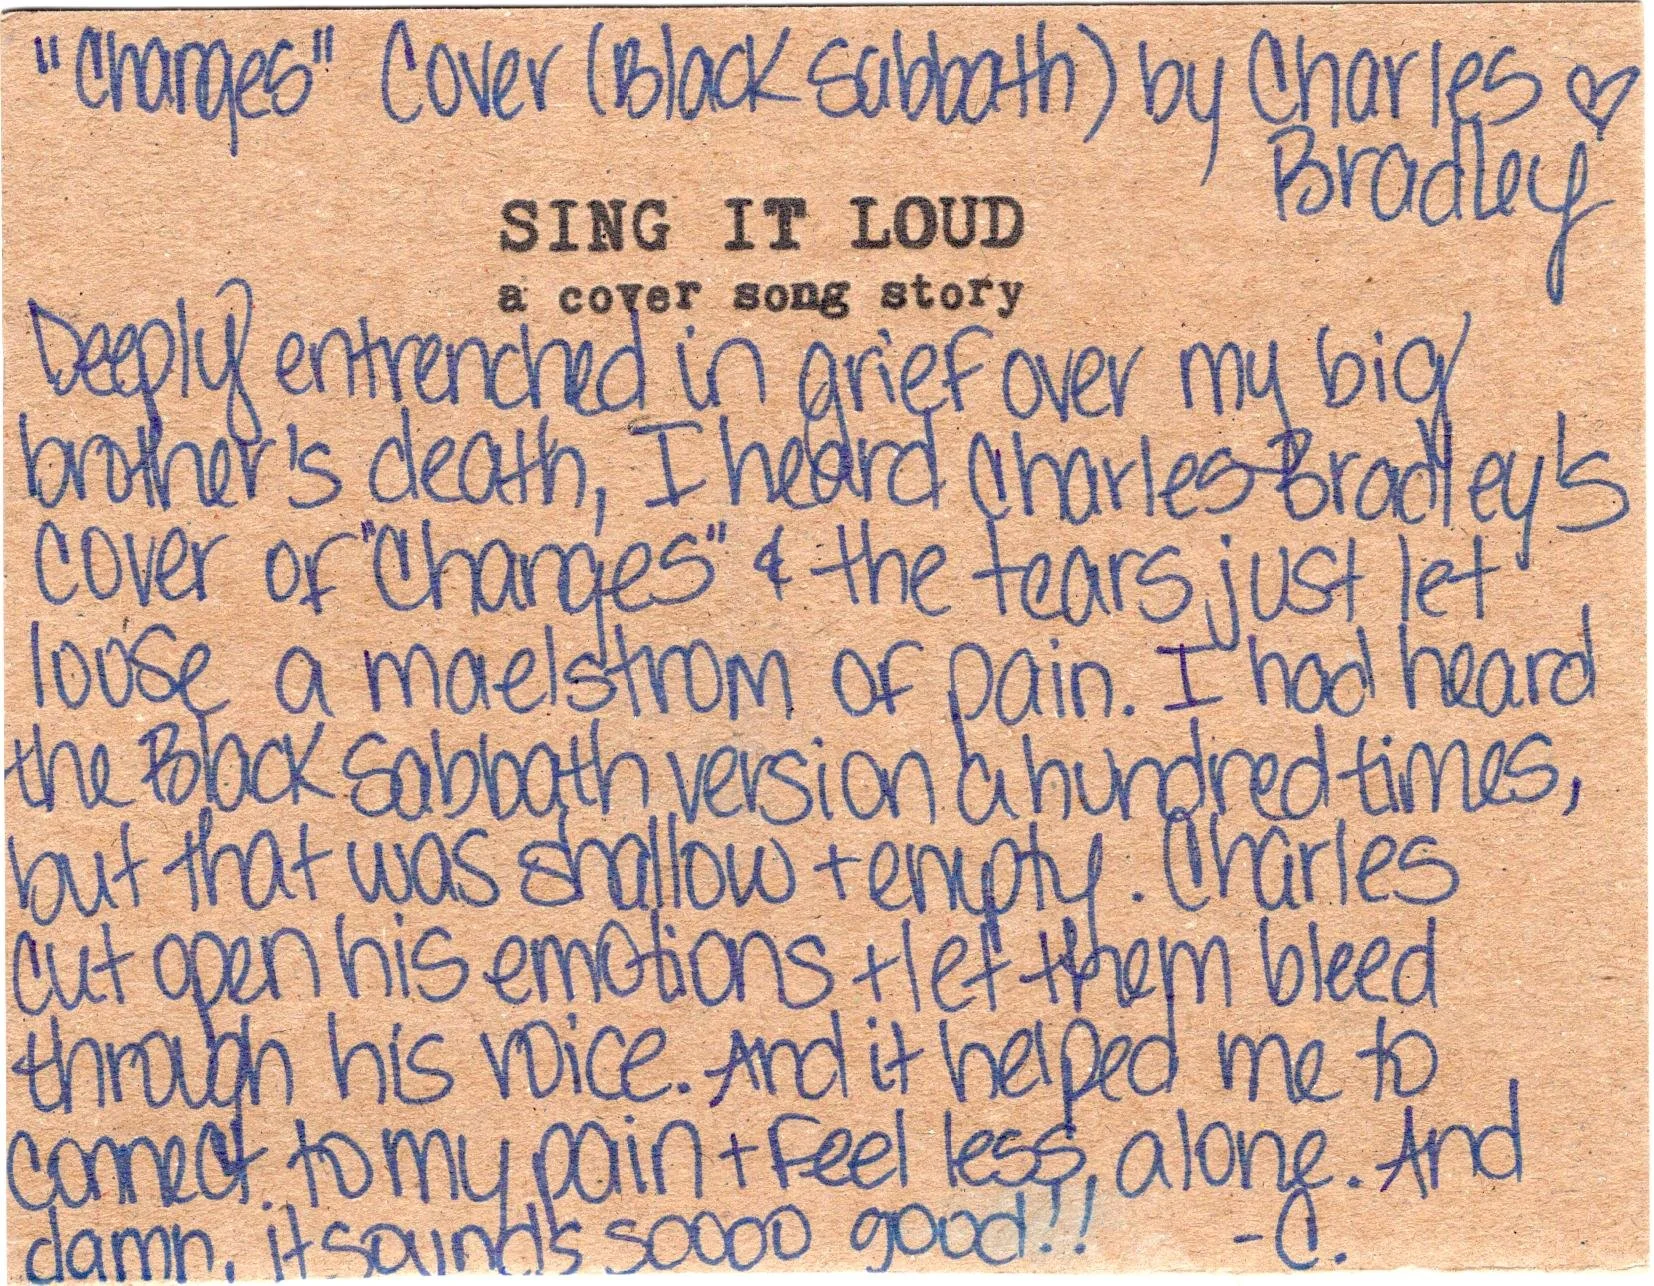 "Changes" Cover (Black Sabbath) by Charles ♡
Bradley
SING IT LOUD
a cover song story
Deeply entrenched in grief over my big
brother's death, I heard Charles Bradley's
cover of "Changes" & the tears just let
loose a maelstrom of pain. I had heard
the Black Sabbath version a hundred times,
but that was shallow + empty. Charles
cut open his emotions + let them bleed
through his voice. And it helped me to
connect to my pain + feel less alone. And
damn, it sounds soooo good!! -C.